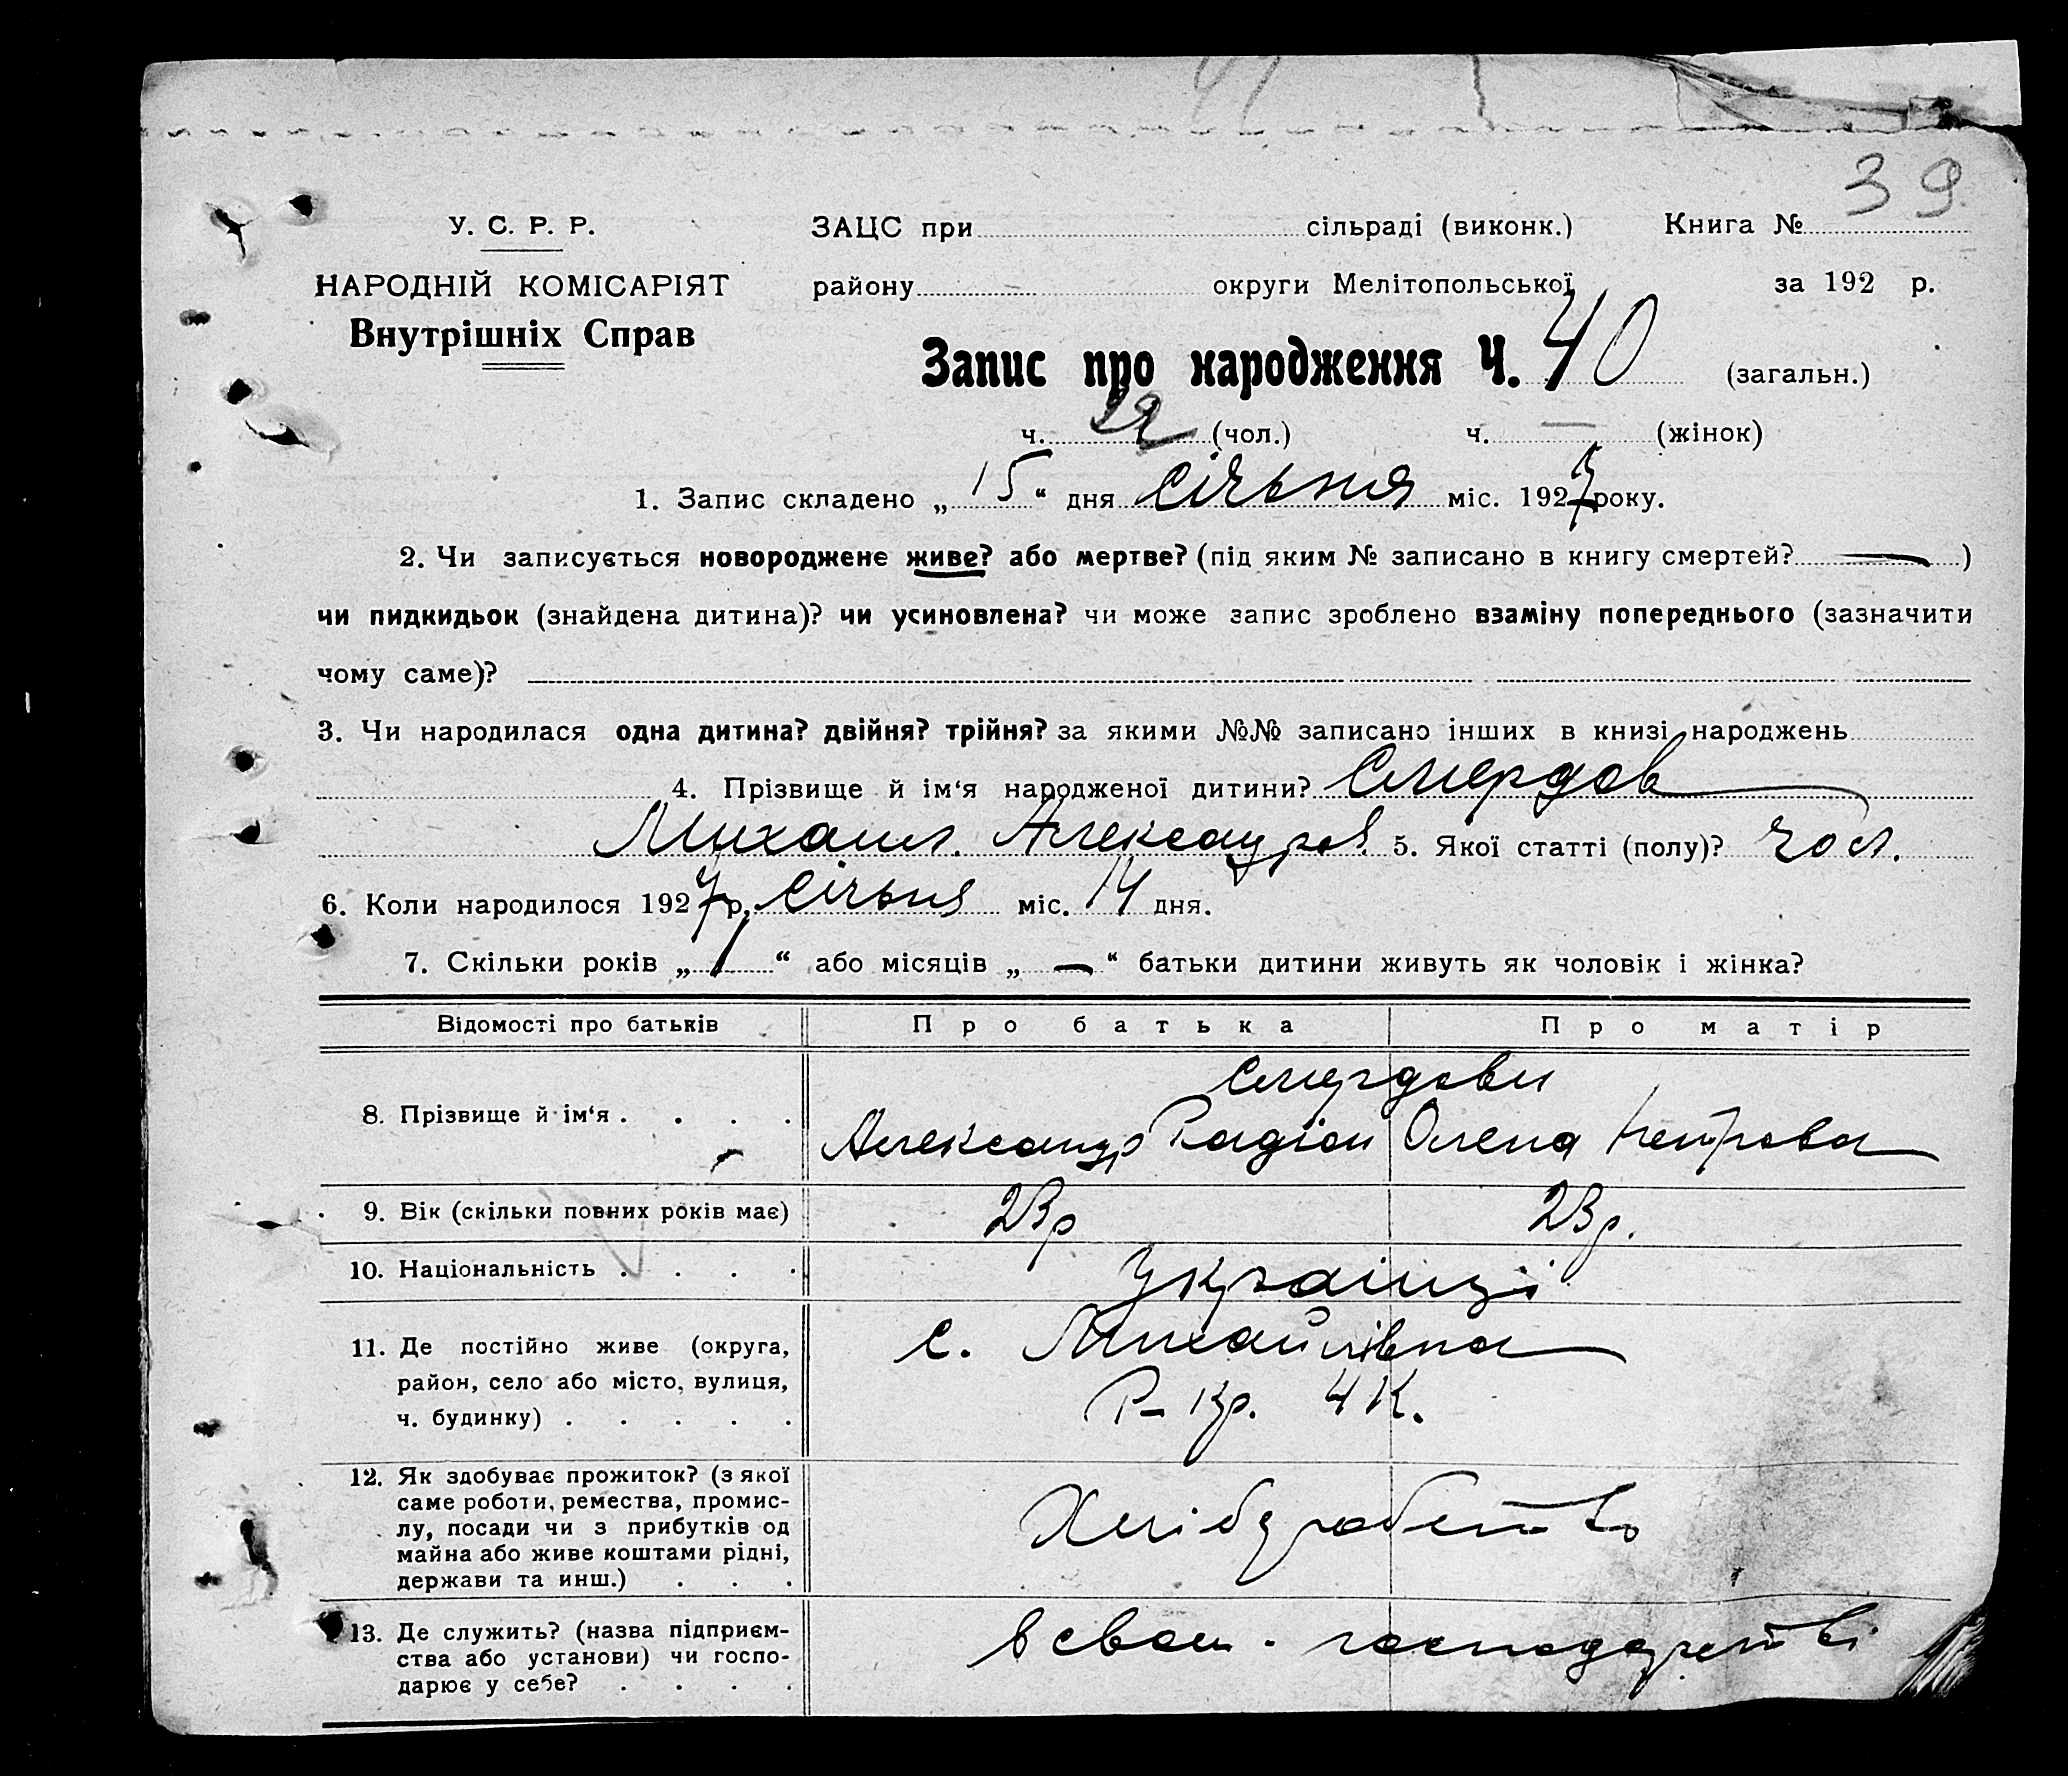 39
У. С. Р. Р.
ЗАЦС при сільраді (виконк.) Книга №
НАРОДНІЙ КОМІСАРІЯТ
району округи Мелітопольської за 192 р.
Внутрішніх Справ
Запис про народження Ч. 40 (загальн.)
ч. 22 (чол.) ч. — (жінок)
1. Запис складено „ 15 “ дня Січьня міс. 1927 року.
2. Чи записується новороджене живе? або мертве? (під яким № записано в книгу смертей? — )
чи пидкидьок (знайдена дитина)? чи усиновлена? чи може запис зроблено взаміну попереднього (зазначити
чому саме)?
3. Чи народилася одна дитина? двійня? трійня? за якими №№ записано інших в книзі народжень
4. Прізвище й ім‘я народженої дитини? Смердов
Михаил. Александров. 5. Якої статті (полу)? чол.
6. Коли народилося 1927 р. Січьня міс. 14 дня.
7. Скільки років „ 1 “ або місяців „ — “ батьки дитини живуть як чоловік і жінка?
Відомості про батьків Про батька Про матір
Смердови
8. Прізвище й ім‘я . . . . Александр Радіон Олена Петрова
9. Вік (скільки повних років має) 23р 23р.
10. Національність . . . . Українці
11. Де постійно живе (округа, с. Михайлівка
район, село або місто, вулиця,
ч. будинку) . . . . . Р- Кр. 4 К.
12. Як здобуває прожиток? (з якої
саме роботи, ремества, промис-
лу, посади чи з прибутків од Хлібуробство
майна або живе коштами рідні,
держави та инш.) . . .
13. Де служить? (назва підприєм- в свом. господарстві
ства або установи) чи госпо-
дарює у себе? . . . .